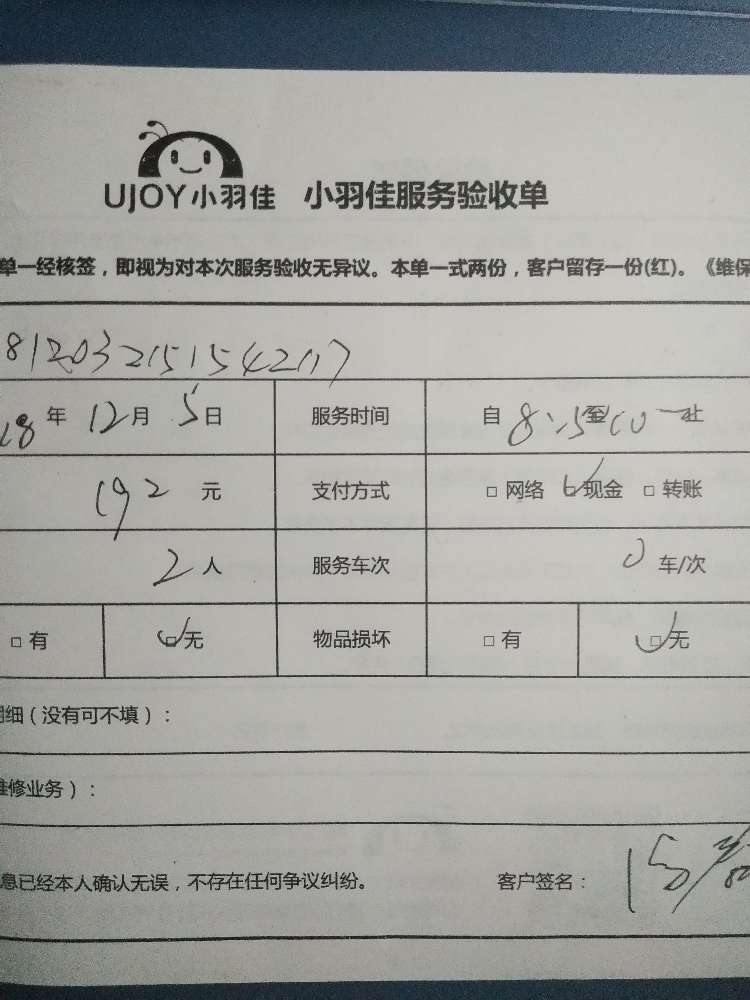 UJOY小羽佳 小羽佳服务验收单
单一经核签，即视为对本次服务验收无异议。本单一式两份，客户留存一份(红)。《维保
年 12月 5日 服务时间 自 8:15至10 止
192 元 支付方式 □ 网络 □现金 □ 转账
2人 服务车次 0 车/次
□ 有 □无 物品损坏 □ 有 □无
明细（没有可不填）：
维修业务）：
息已经本人确认无误，不存在任何争议纠纷。 客户签名：